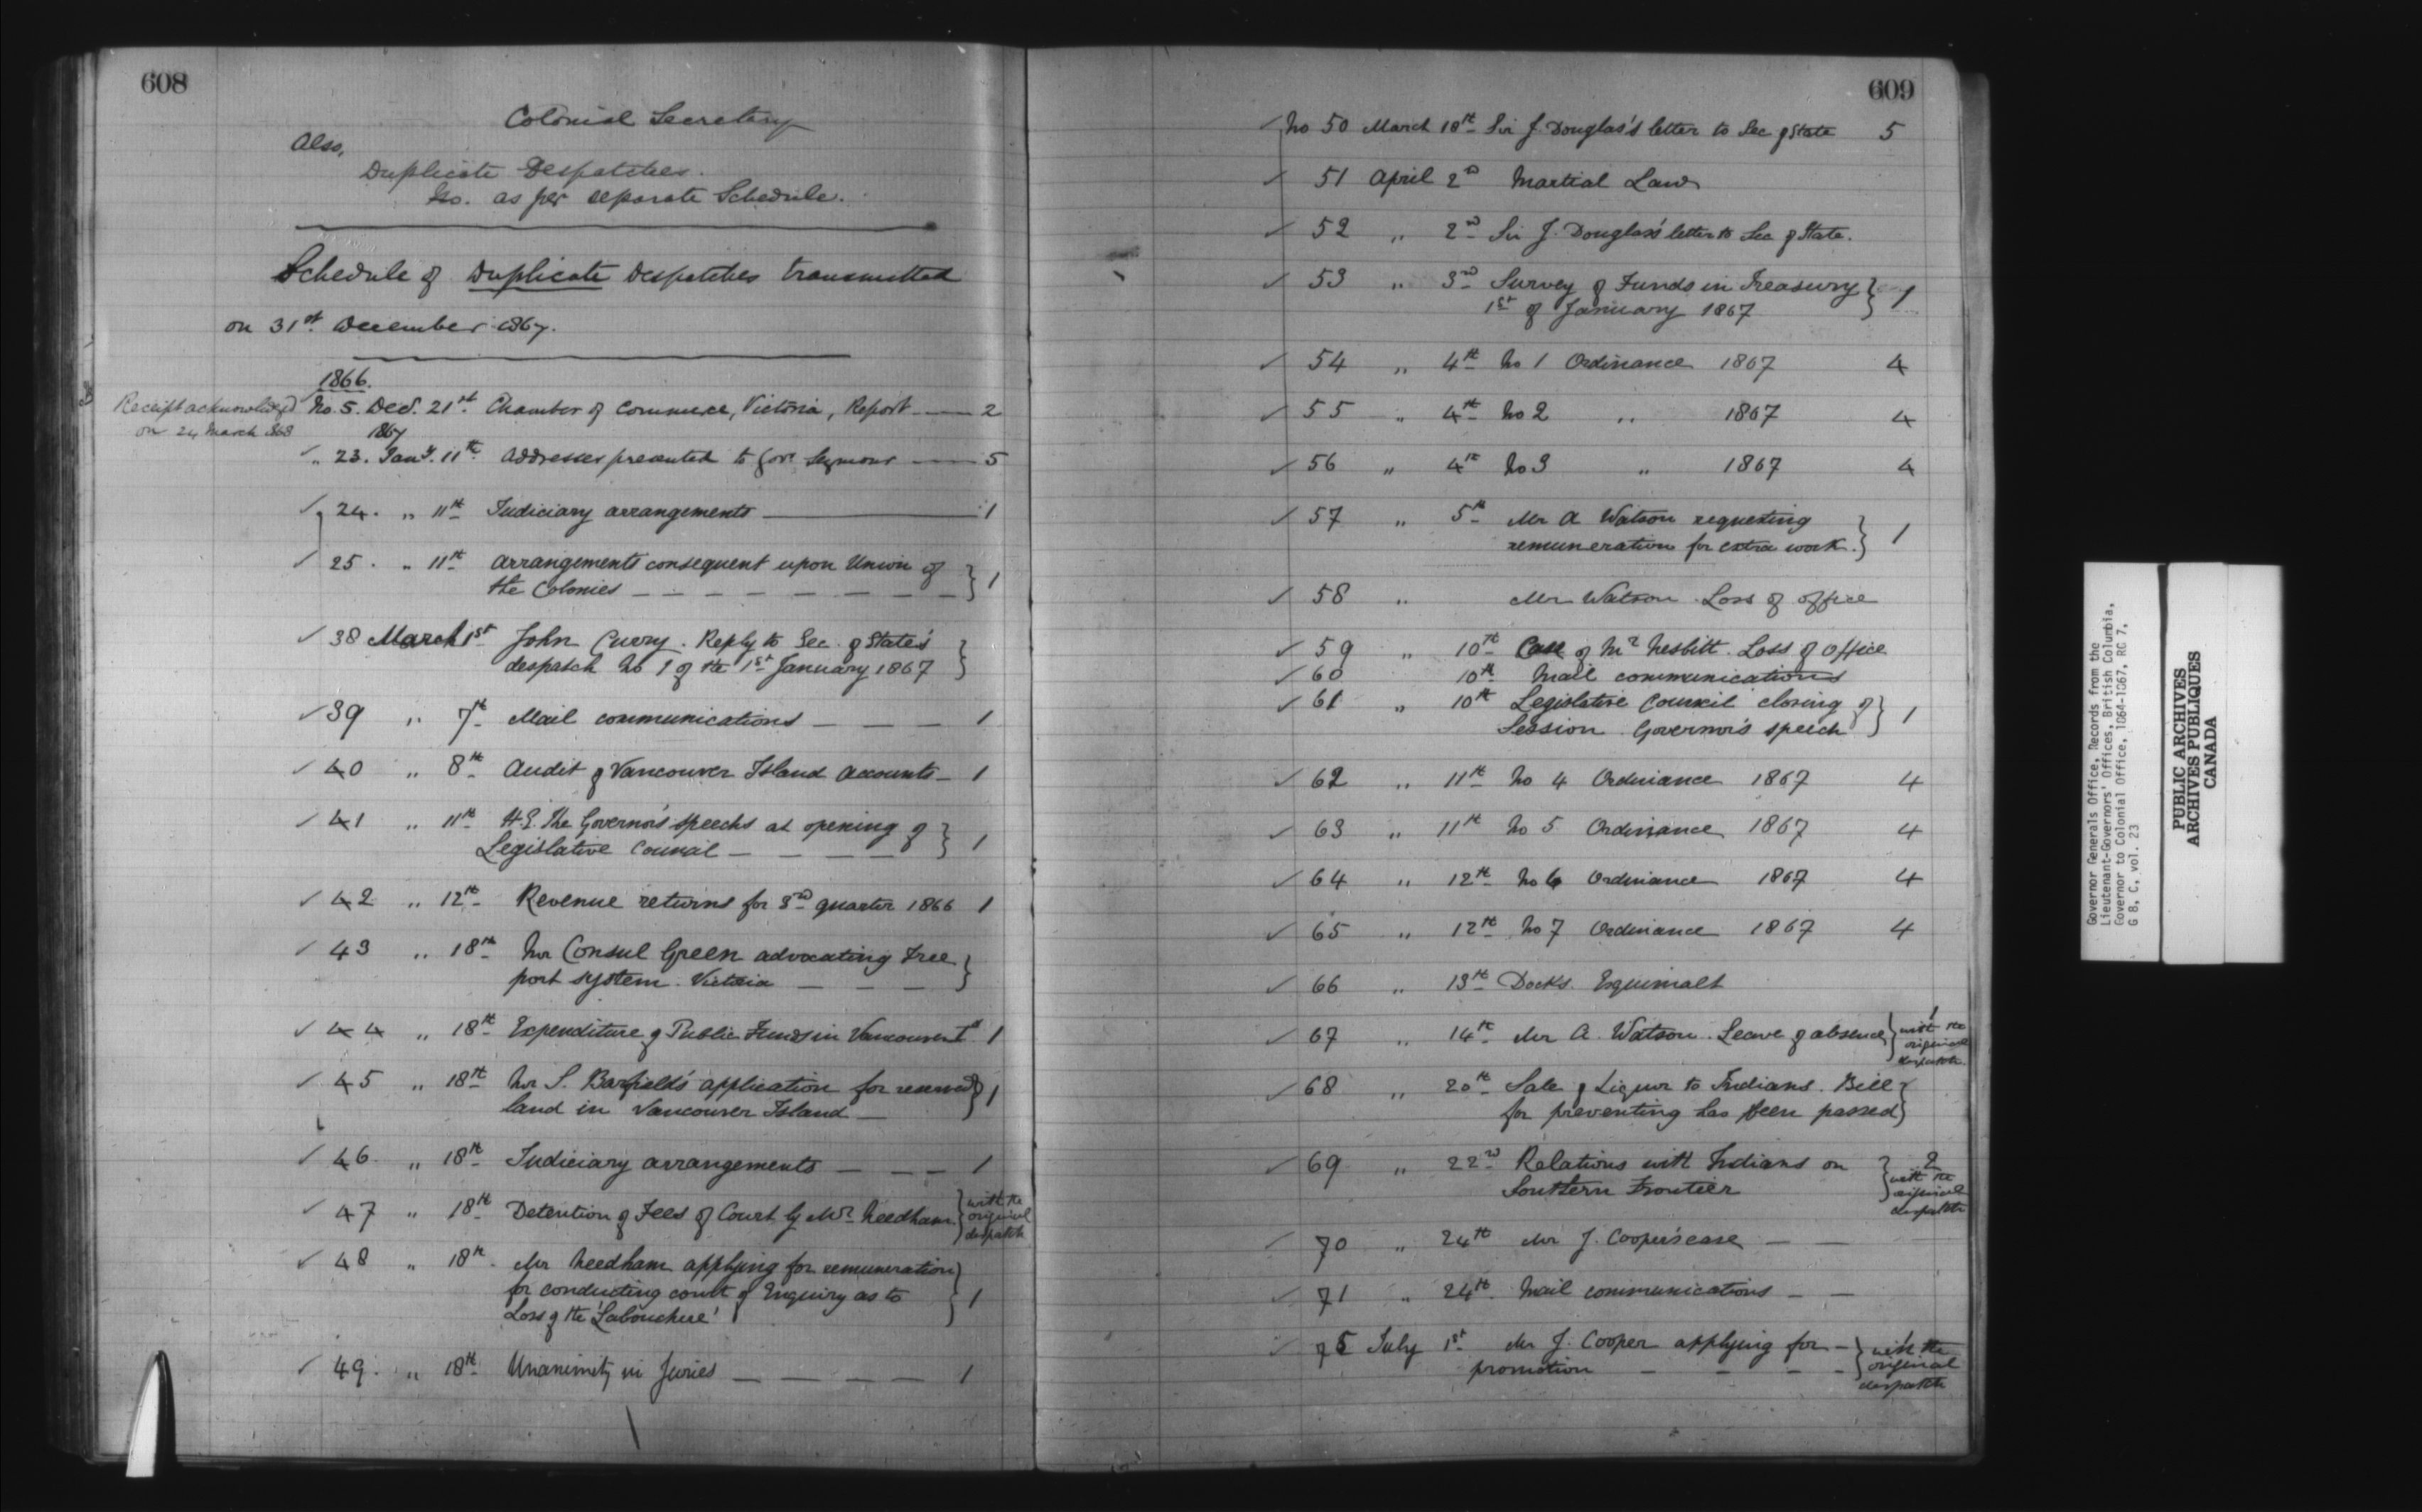 608
Colonial Secretary
Also,
Duplicate Despatches.
No. as per separate Schedule.
Schedule of Duplicate Despatches transmitted
on 31st December 1867.
1866.
Receipt acknowledged
on 24 March 1868
No. 5. Dec. 21st. Chamber of Commerce, Victoria, Report 2
1867
✓ „ 23. Jany. 11th Addresses presented to Gov. Seymour 5
✓ 24. „ 11th Judiciary arrangements 1
✓ 25. „ 11th Arrangements consequent upon Union of
the Colonies } 1
✓ 38 March 1st John Curry. Reply to Sec. of State's
despatch No 1 of the 1st January 1867 }
✓ 39 „ 7th Mail communications 1
✓ 40 „ 8th Audit of Vancouver Island Accounts 1
✓ 41 „ 11th H.E. The Governor's speechs at opening of
Legislative Council } 1
✓ 42 „ 12th Revenue returns for 3rd quarter 1866 1
✓ 43 „ 18th Mr Consul Green advocating Free
port system. Victoria }
✓ 44 „ 18th Expenditure of Public Funds in Vancouver Id 1
✓ 45 „ 18th Mr S. Barfield's application for reserved
land in Vancouver Island } 1
✓ 46 „ 18th Judiciary arrangements 1
✓ 47 „ 18th Detention of Fees of Court by Mr Needham. } with the
original
despatch
✓ 48 „ 18th. Mr Needham applying for remuneration
for conducting court of Enquiry as to
Loss of the 'Labouchere' } 1
✓ 49. „ 18th Unanimity in Juries 1
609
✓ No 50 March 18th Sir J. Douglas's letter to Sec of State 5
✓ 51 April 2nd Martial Law
✓ 52 „ 2nd Sir J. Douglas's letter to Sec of State.
✓ 53 „ 3rd Survey of Funds in Treasury
1st of January 1867 } 1
✓ 54 „ 4th No 1 Ordinance 1867 4
✓ 55 „ 4th No 2 „ 1867 4
✓ 56 „ 4th No 3 „ 1867 4
✓ 57 „ 5th Mr A Watson requesting
remuneration for extra work. } 1
✓ 58 „ Mr Watson Loss of office
✓ 59 „ 10th Case of Mr Nesbitt. Loss of Office
✓ 60 10th Mail communications
✓ 61 „ 10th Legislative Council closing of
Session Governor's speech } 1
✓ 62 „ 11th No 4 Ordinance 1867 4
✓ 63 „ 11th No 5 Ordinance 1867 4
✓ 64 „ 12th No 6 Ordinance 1867 4
✓ 65 „ 12th No 7 Ordinance 1867 4
✓ 66 „ 13th Docks. Esquimalt
✓ 67 „ 14th Mr A. Watson. Leave of absence } 1
with the
original
despatch
✓ 68 „ 20th Sale of Liquor to Indians. Bill
for preventing has been passed }
✓ 69 „ 22nd Relations with Indians on
Southern Frontier } 2
with the
original
despatch
✓ 70 „ 24th Mr J. Cooper's case
✓ 71 „ 24th Mail communications
✓ 75 July 1st Mr J. Cooper applying for
promotion } 1
with the
original
despatch
Governor Generals Office, Records from the
Lieutenant-Governors' Offices, British Columbia,
Governor to Colonial Office, 1864-1867, RG 7,
G 8, C, vol. 23
PUBLIC ARCHIVES
ARCHIVES PUBLIQUES
CANADA